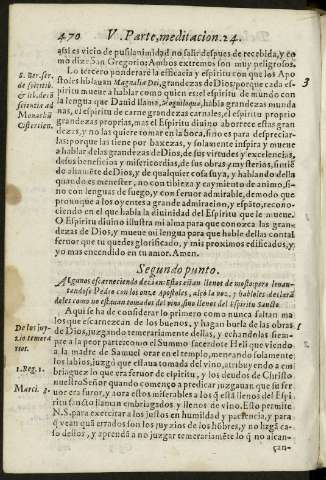 470 V. Parte, meditacion. 24.
assi es vicio de pusilanimidad no salir despues de recebida, y co
mo dize San Gregorio: Ambos extremos son muy peligrosos.
Lo tercero ponderaré la eficacia y espiritu con que los Apo
stoles hablauan Magnalia Dei, grandezas de Dios: porque cada es-
piritu mueue a hablar como quien es: el espiritu de mundo con
la lengua que Dauid llama, habla grandezas munda
nas, el espiritu de carne grandezas carnales, el espiritu proprio
grandezas proprias, mas el Espiritu diuino aborrece estas gran
dezas, y no las quiere tomar en la boca, sino es para despreciar-
las: porque las tiene por baxezas, y solamente inspira y mueue
a hablar de las grandezas de Dios, de sus virtudes y excelencias,
de sus beneficios y misericordias, de sus obras y mysterios, sintiē
do altamēte de Dios, y de qualquier cosa suya, y hablando della
quando es menester, no con tibieza y caymiento de animo, si-
no con lenguas de fuego, y con feruor admirable, de modo que
prouoque a los oyentes a grande admiracion, y espāto, recono-
ciendo en el que habla la diuinidad del Espiritu que le mueue.
O Espiritu diuino illustra mi alma para que conozca las gran-
dezas de Dios, y mueue mi lengua para que hable dellas con tal
feruor que tu quedes glorificado, y mis proximos edificados, y
yo mas encendido en tu amor. Amen.
S. Ber. ser.
3
Segundo punto.
Algunos escarneciendo dezian: Estos estan llenos de mosto: pero leuan-
tandose Pedro con los onze Apostoles, alçò la voz, y hablòles declarā
doles como no estauan tomados del vino, sino llenos del Espiritu Sancto.
Aqui se ha de considerar lo primero como nunca faltan ma
los que escarnezcan de los buenos, y hagan burla de las obras
de Dios, juzgando temerariamente dellas, y echandolas siem-
pre a la peor parte: como el Summo sacerdote Heli que viendo
a la madre de Samuel orar en el templo, meneando solamente
los labios, juzgò que estaua tomada del vino, atribuyendo a em
briaguez lo que era feruor de espiritu, y los deudos de Christo
nuestro Señor quando començò a predicar juzgauan que su fer
uor era furor, y aora estos miserables a los q̄ està llenos del Espi
ritu sancto llaman embriagados y llenos de vino. Esto permite
N. S. para exercitar a los justos en humildad y paciencia, y para
q̄ vean quā errados son los juyzios de los hōbres, y no hagā ca-
so dellos, y aprendā a no juzgar temerariamēte lo q̄ no alcan-
çan-
1
De los juy-
zio temera
rios.
1. Reg. 1.
Marci. 3.